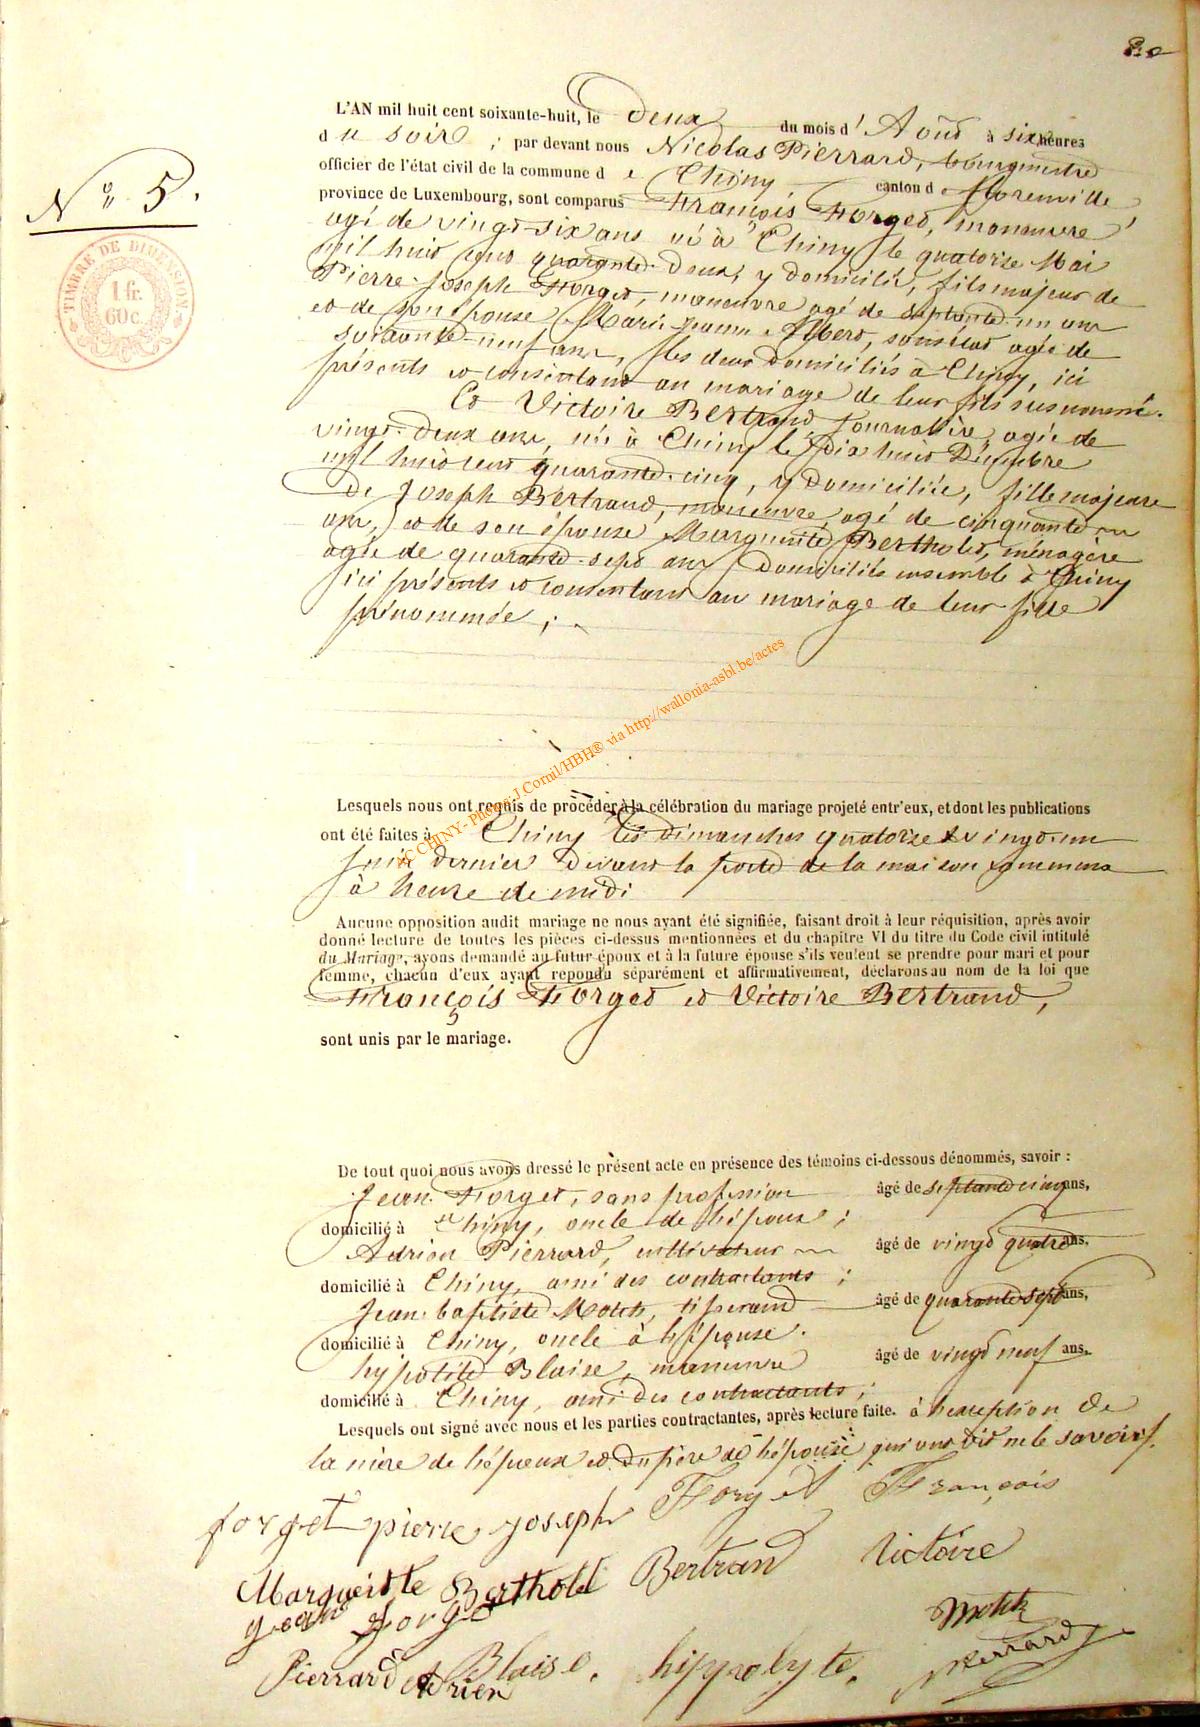 N° 5.
TIMBRE DE DIMENSION
1 fr.
60 c.
L'AN mil huit cent soixante-huit, le deux du mois d'Août à six heures
du soir ; par devant nous Nicolas Pierrard, bourgmestre
officier de l'état civil de la commune de Chiny canton de Florenville
province de Luxembourg, sont comparus François Forget, manœuvre
agé de vingt-six ans né à Chiny le quatorze Mai
mil huit cent quarante-deux, y domicilié, fils majeur de
Pierre-Joseph Forget, manœuvre agé de septante-un ans
et de son épouse Marie Jeanne Albert, sans état agée de
soixante-neuf ans, les deux domiciliés à Chiny, ici
présents et consentant au mariage de leur fils susnommé.
Et Victoire Bertrand, Journalière, agée de
vingt-deux ans, née à Chiny le dix huit Décembre
mil huit cent quarante-cinq, y domiciliée, fille majeure
de Joseph Bertrand, manœuvre, agé de cinquante un
ans, et de son épouse Marguerite Berthold, ménagère
agée de quarante-sept ans domiciliés ensemble à Chiny
ici présents et consentant au mariage de leur fille
prénommée ;
CHINY - Photo J.Cornil/HBH® via http://wallonia-asbl.be/actes
Lesquels nous ont requis de procéder à la célébration du mariage projeté entr'eux, et dont les publications
ont été faites à Chiny les dimanches quatorze & vingt-un
Juin dernier devant la porte de la maison commune
à heure de midi
Aucune opposition audit mariage ne nous ayant été signifiée, faisant droit à leur réquisition, après avoir
donné lecture de toutes les pièces ci-dessus mentionnées et du chapitre VI du titre du Code civil intitulé
du Mariage, avons demandé au futur époux et à la future épouse s'ils veulent se prendre pour mari et pour
femme, chacun d'eux ayant repondu séparément et affirmativement, déclarons au nom de la loi que
François Forget et Victoire Bertrand,
sont unis par le mariage.
De tout quoi nous avons dressé le présent acte en présence des témoins ci-dessous dénommés, savoir :
Jean Forget, sans profession âgé de septante cinq ans,
domicilié à Chiny, oncle de l'époux ;
Adrien Pierrard, cultivateur âgé de vingt quatre ans,
domicilié à Chiny, ami des contractants ;
Jean-baptiste Motch, tisserand âgé de quarante-sept ans,
domicilié à Chiny, oncle à l'épouse.
hypolite Blaise, manœuvre âgé de vingt neuf ans.
domicilié à Chiny, ami des contractants ;
Lesquels ont signé avec nous et les parties contractantes, après lecture faite. à l'exception de
la mère de l'époux et du père de l'épouse qui ont dit ne le savoir.
forget pierre joseph Forget François
Marguerite Berthold Bertrand Victoire
jean forget Motch
Pierrard Adrien Blaise. hippolyte. Pierrard